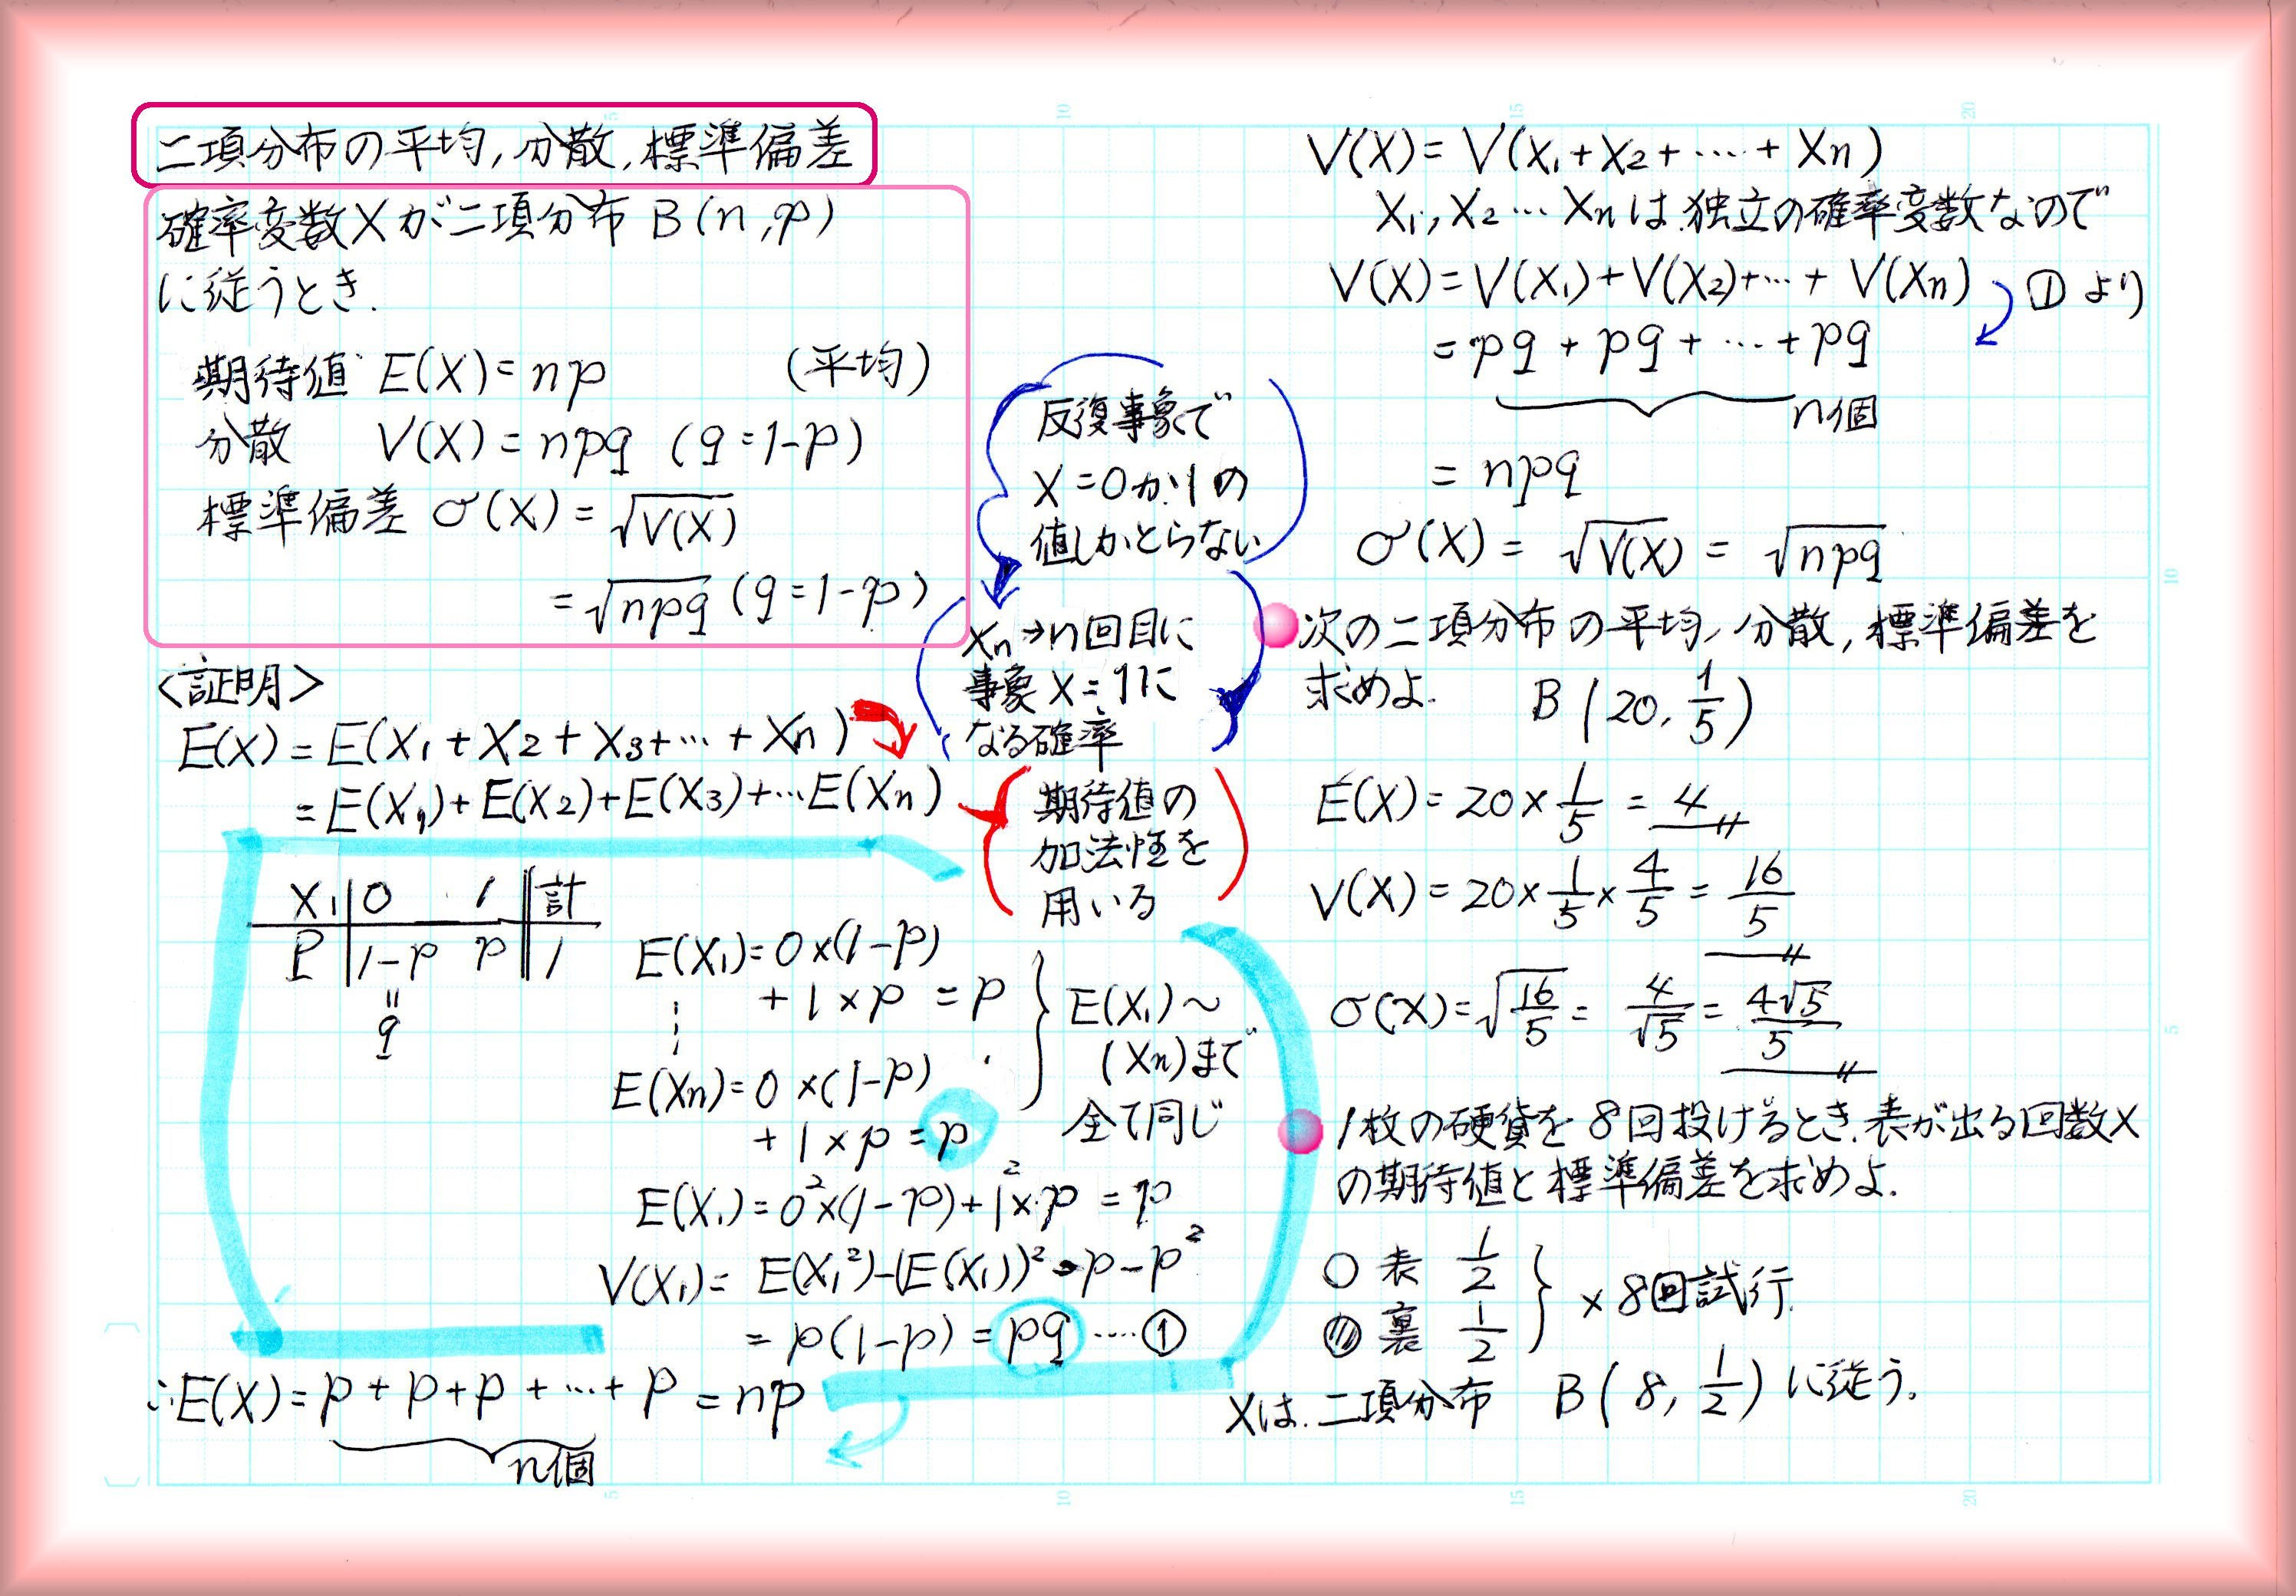 二項分布の平均,分散,標準偏差
確率変数Xが二項分布 B(n,p)
に従うとき.
期待値 E(X)=np (平均)
分散 V(X)=npq (q=1-p)
標準偏差 σ(X)=√V(X)
=√npq (q=1-p)
<証明>
E(X)=E(X₁+X₂+X₃+…+Xn)
=E(X₁)+E(X₂)+E(X₃)+…E(Xn)
反復事象で
X=0か1の
値しかとらない
Xn→n回目に
事象X=1に
なる確率
期待値の
加法性を
用いる
X₁ 0 1 計
P 1-p p 1
=
q
E(X₁)=0×(1-p)
+1×p=p
⋮
E(Xn)=0×(1-p)
+1×p=p
E(X₁)~
(Xn)まで
全て同じ
E(X₁)=0²×(1-p)+1²×p=p
V(X₁)=E(X₁²)-(E(X₁))²=p-p²
=p(1-p)=pq ‥‥①
∴E(X)=p+p+p+…+p=np
n個
V(X)=V(X₁+X₂+…+Xn)
X₁,X₂…Xnは独立の確率変数なので
V(X)=V(X₁)+V(X₂)+…+V(Xn) ①より
=pq+pq+…+pq
n個
=npq
σ(X)=√V(X)=√npq
次の二項分布の平均,分散,標準偏差を
求めよ. B(20,1/5)
E(X)=20×1/5=4
V(X)=20×1/5×4/5=16/5
σ(X)=√16/5=4/√5=4√5/5
1枚の硬貨を8回投げるとき.表が出る回数X
の期待値と標準偏差を求めよ.
表 1/2
裏 1/2
×8回試行.
Xは.二項分布 B(8,1/2)に従う.
5
10
15
20
10
5
5
10
15
20